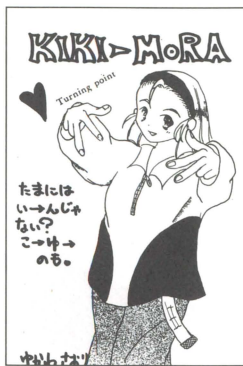 KIKI▷MoRA
Turning point
たまには
い→んじゃ
ない?
こ→ゆ→
のも。
ゆかわさおり